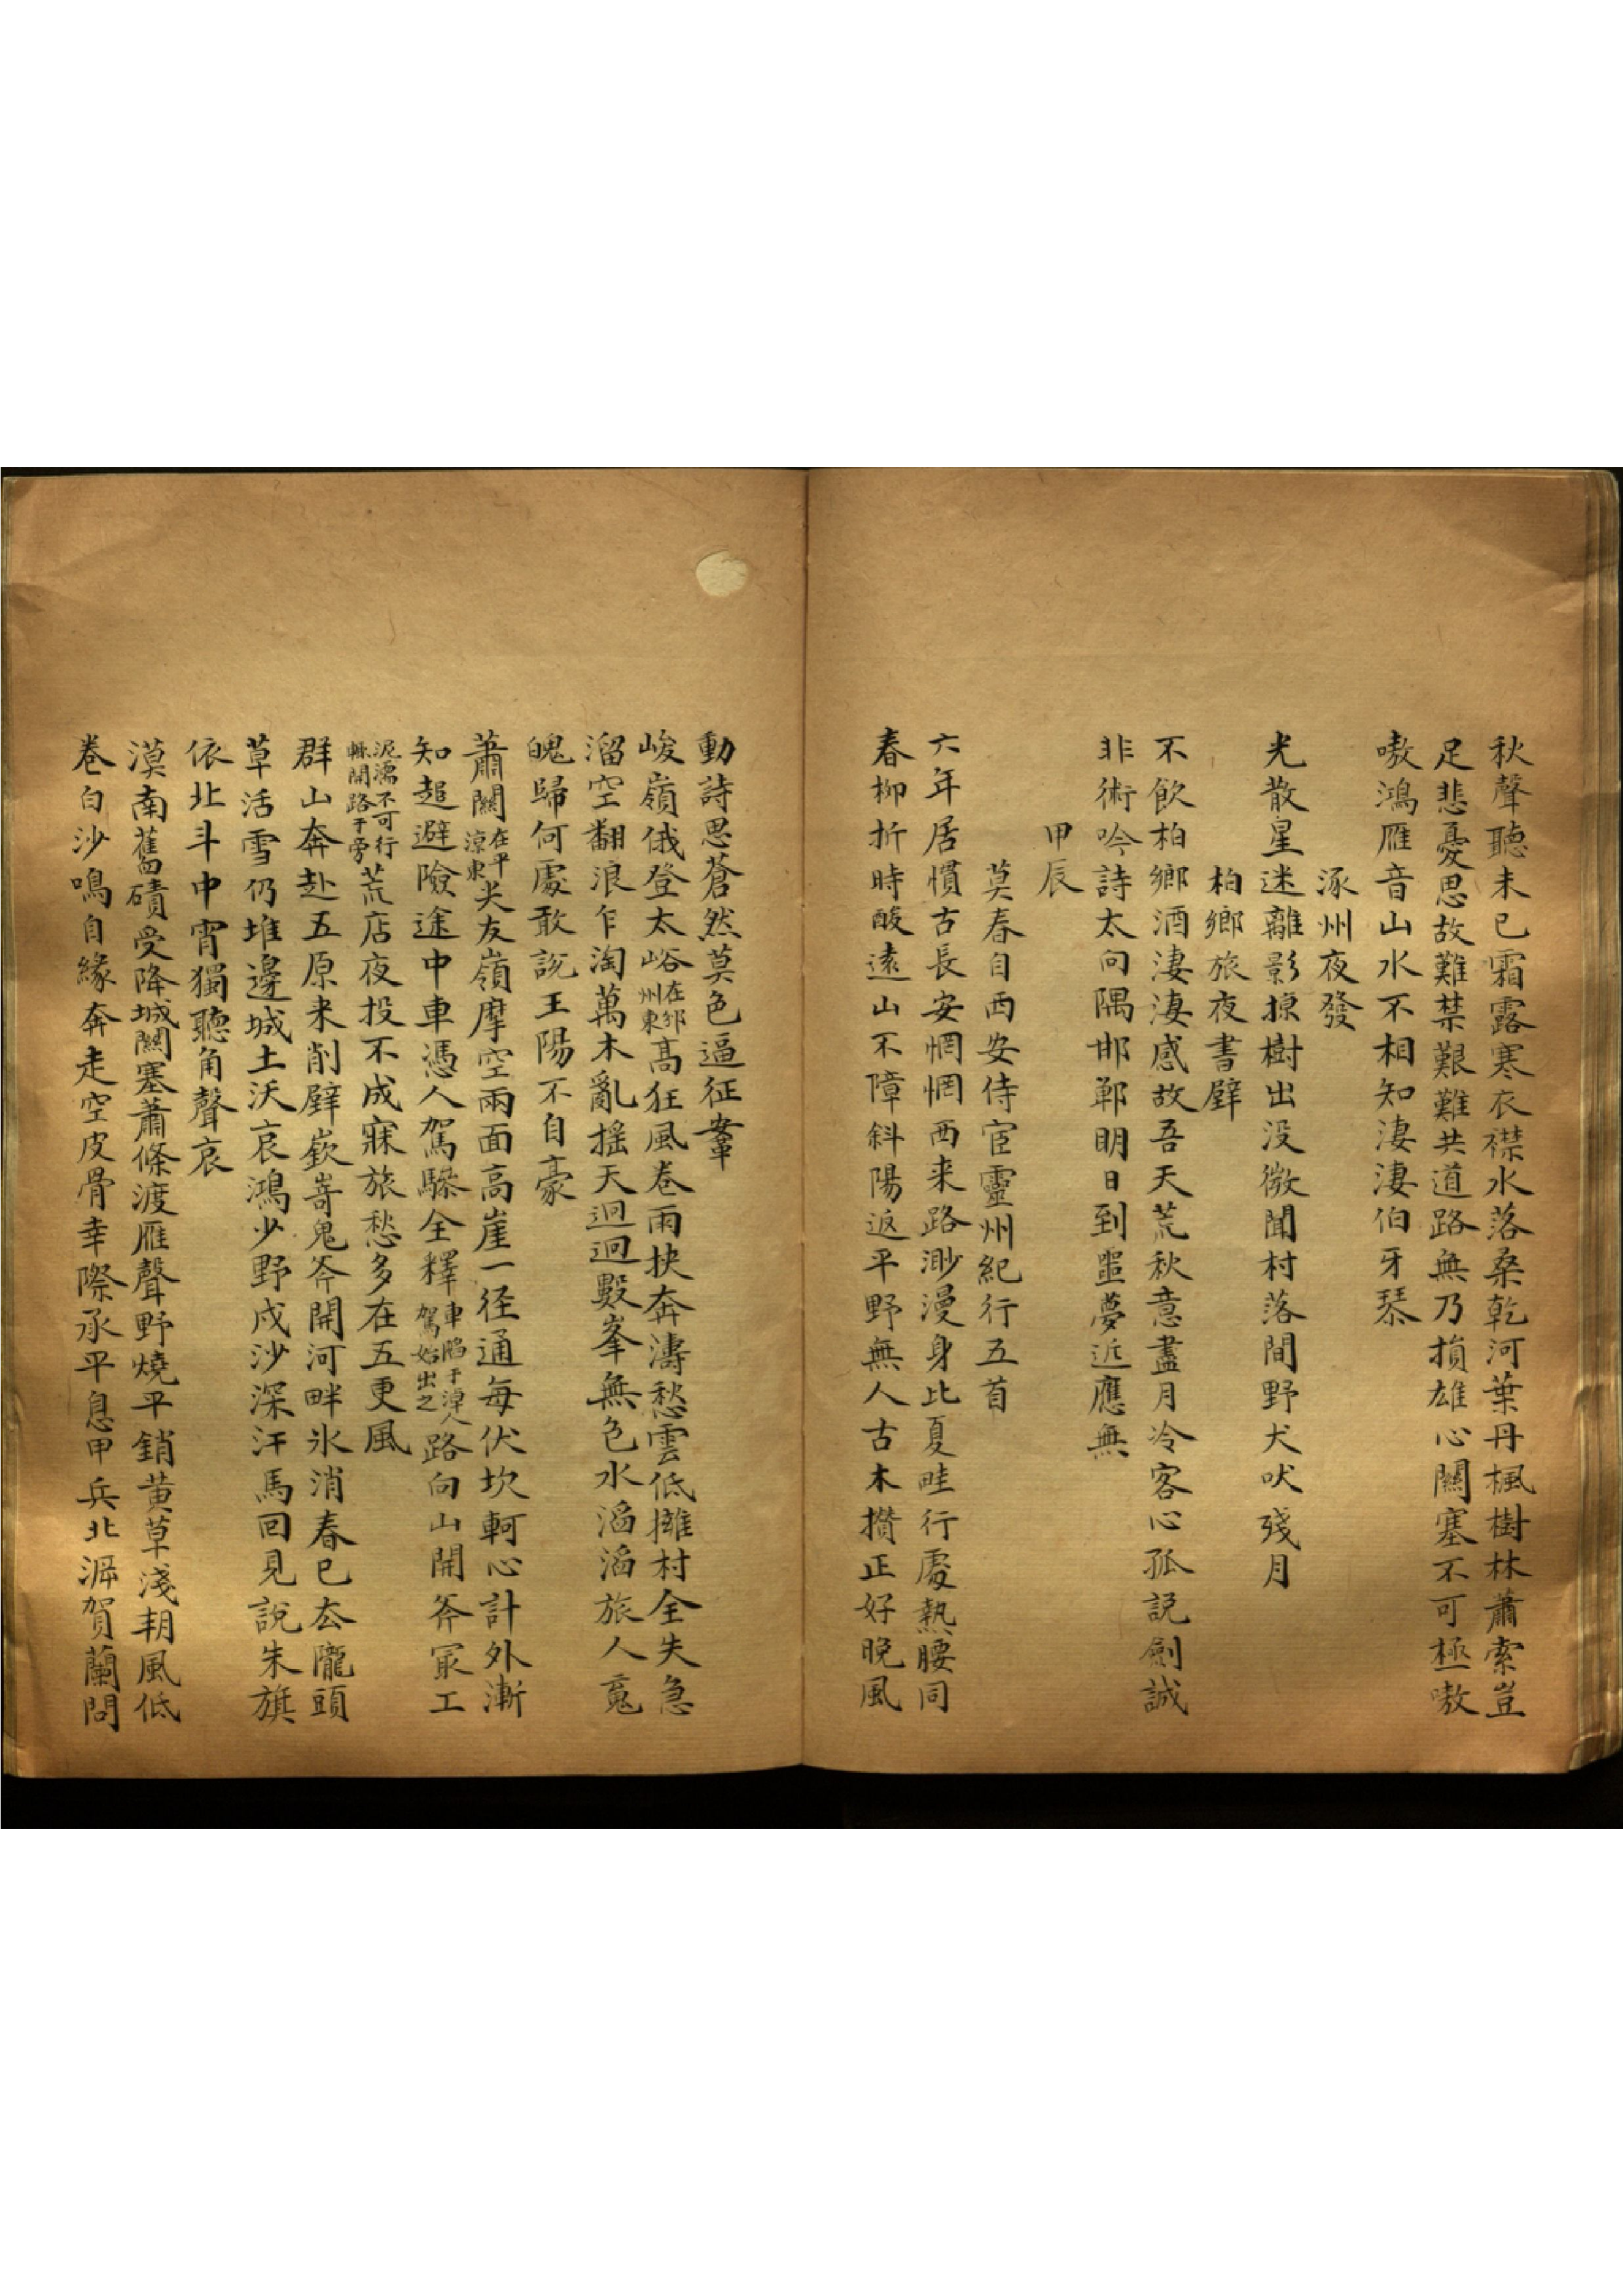 秋聲聽未已霜露寒衣襟水落桑乾河葉丹楓樹林蕭索豈
足悲憂思故難禁艱難共道路無乃損雄心關塞不可極嗷
嗷鴻雁音山水不相知淒淒伯牙琴
涿州夜發
光散星迷離影掠樹出没微聞村落間野犬吠殘月
柏鄉旅夜書壁
不飲柏鄉酒淒淒感故吾天荒秋意盡月冷客心孤説劍誠
非術吟詩太向隅邯鄲明日到噩夢近應無
甲辰
莫春自西安侍宦靈州紀行五首
六年居慣古長安惘惘西来路渺漫身比夏畦行處熱腰同
春柳折時酸遠山不障斜陽返平野無人古木攢正好晚風
動詩思蒼然莫色逼征鞌
峻嶺俄登太峪在邠州東高狂風卷雨挾奔濤愁雲低擁村全失急
溜空翻浪乍淘萬木亂摇天迴迴數峯無色水滔滔旅人䰟
魄歸何處敢説王陽不自豪
蕭關在平涼東尖友嶺摩空兩面高崖一径通每伏坎軻心計外漸
知趨避險途中車憑人駕驂全釋車陷于淖人駕始出之路向山開斧冣工
泥濘不可行縣開路于旁荒店夜投不成寐旅愁多在五更風
群山奔赴五原来削壁嶔嵜鬼斧開河畔氷消春已厺隴頭
草活雪仍堆邊城土沃哀鴻少野戍沙深汗馬回見說朱旗
依北斗中宵獨聽角聲哀
漠南舊磧受降城關塞蕭條渡雁聲野燒平銷黄草淺朔風低
卷白沙鳴自緣奔走空皮骨幸際承平息甲兵北渥賀蘭問